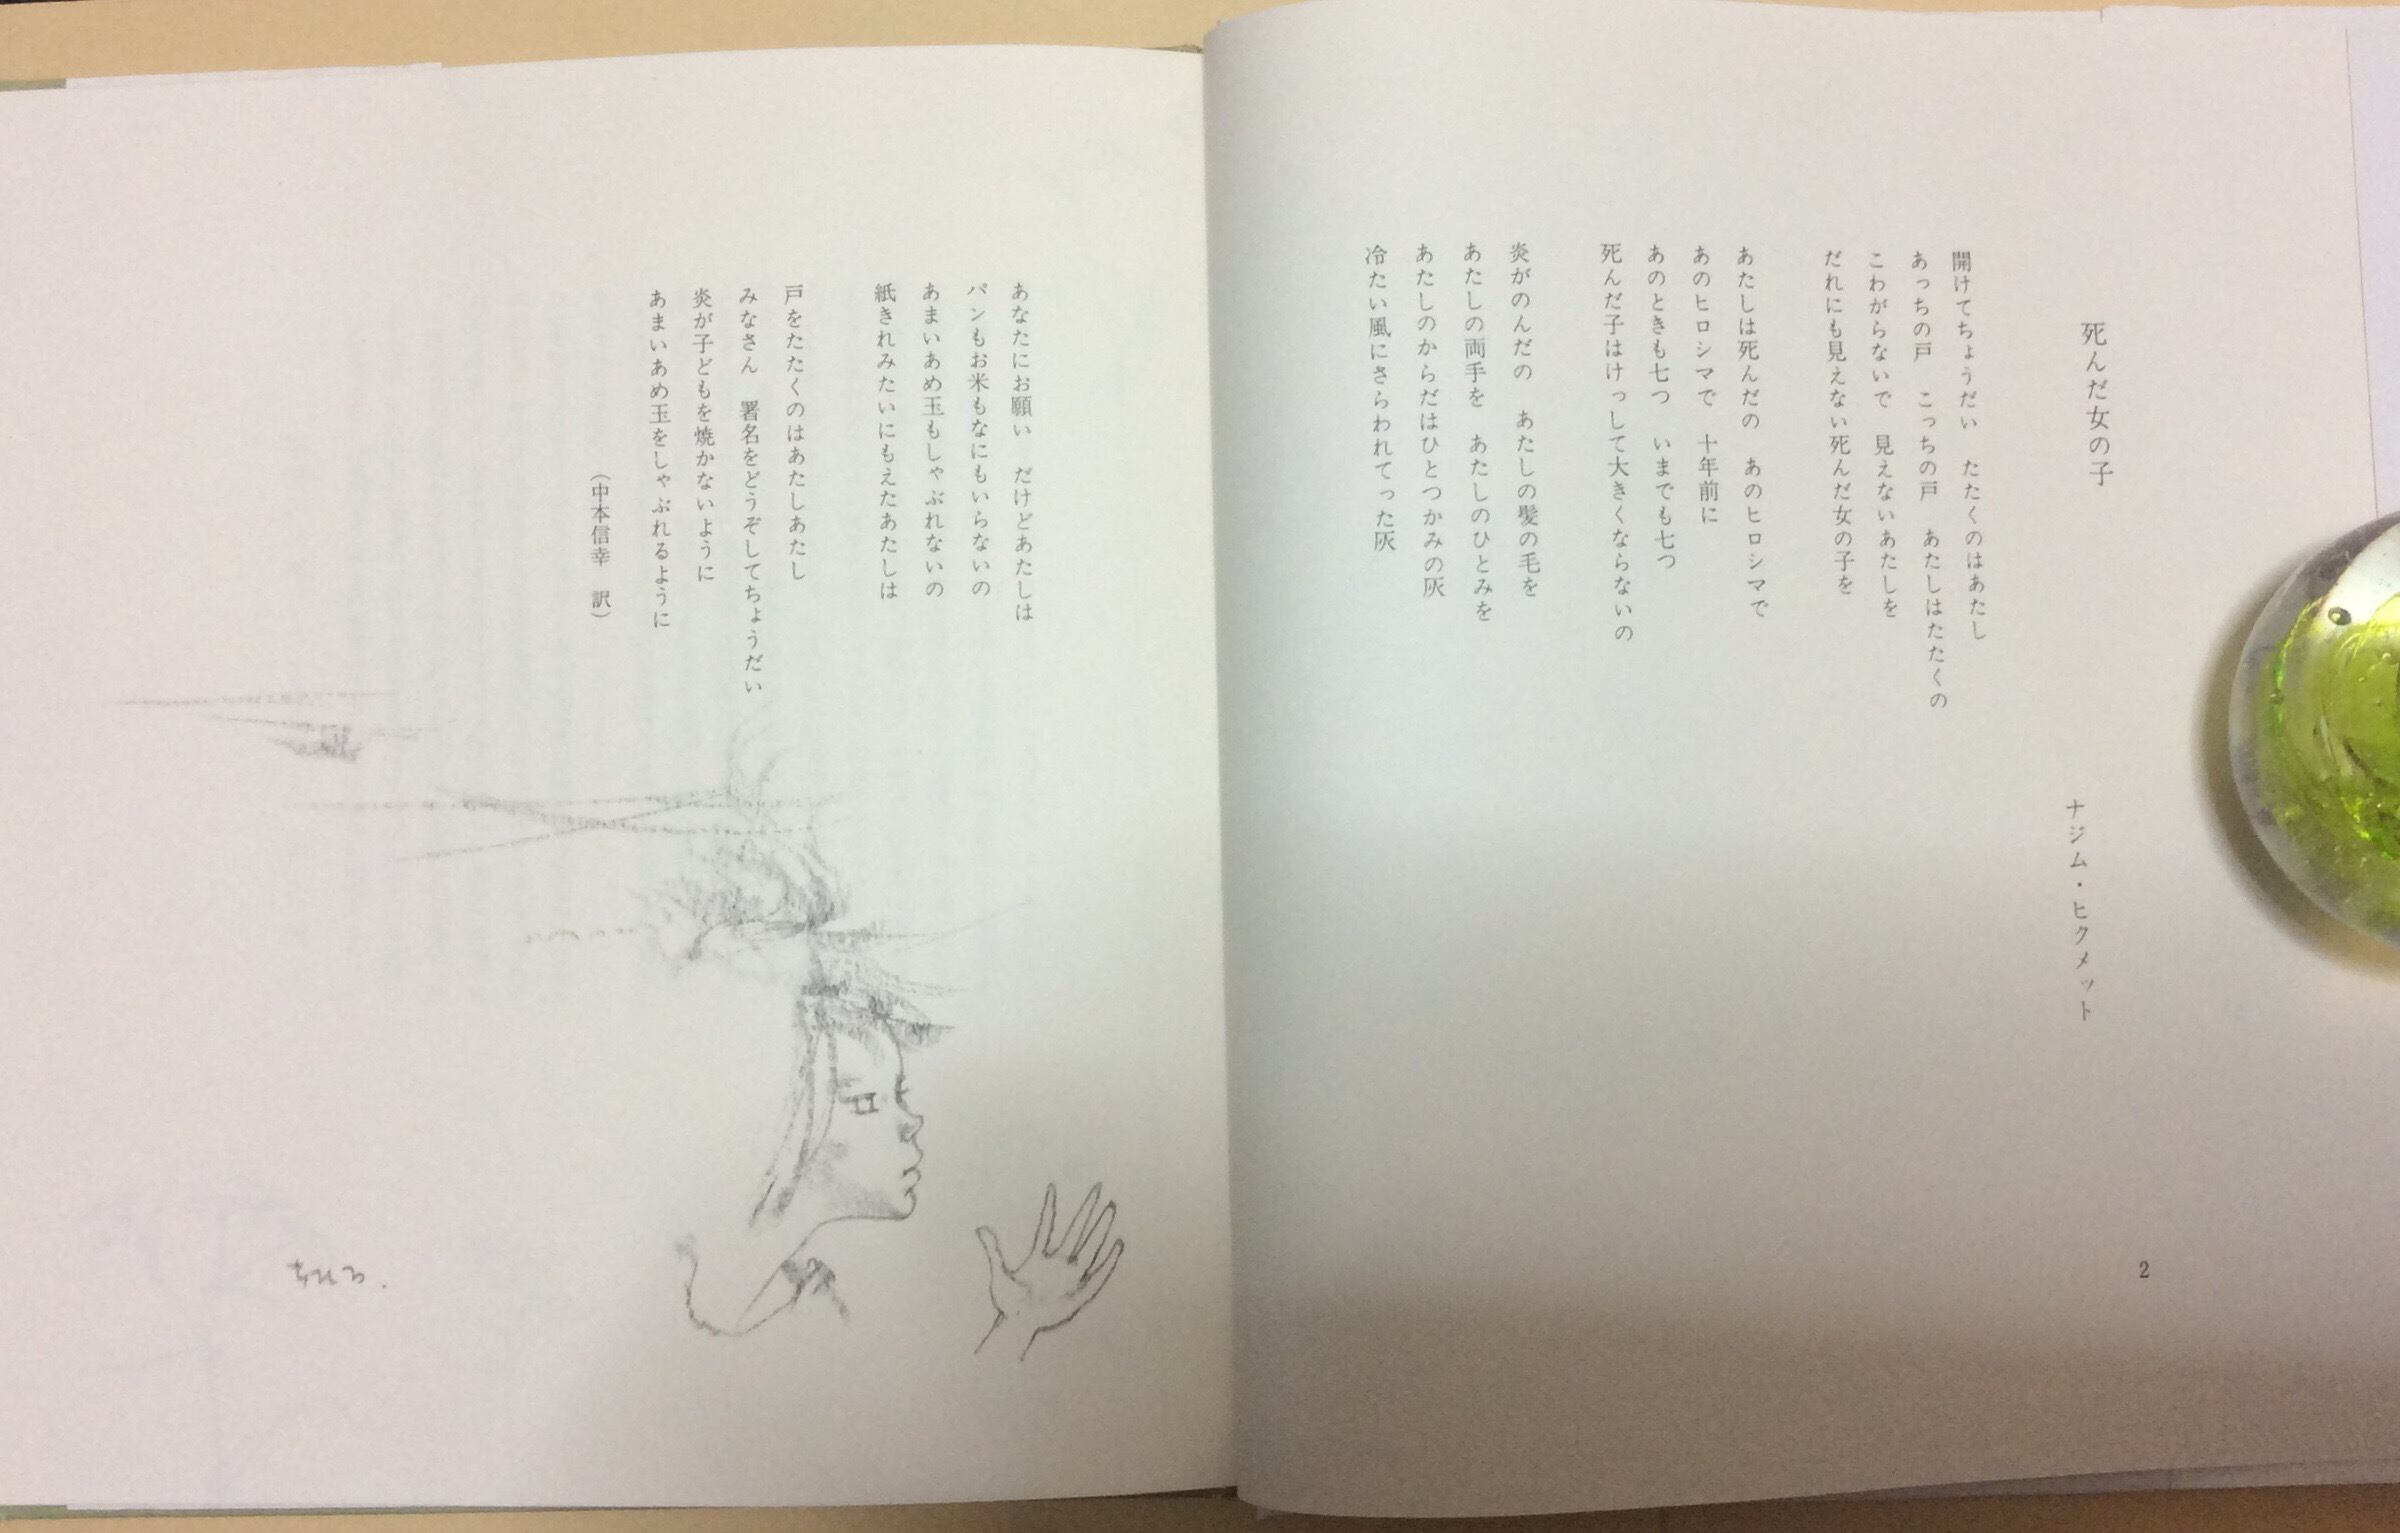 死んだ女の子
ナジム・ヒクメット
開けてちょうだい　たたくのはあたし
あっちの戸　こっちの戸　あたしはたたくの
こわがらないで　見えないあたしを
だれにも見えない死んだ女の子を
あたしは死んだの　あのヒロシマで
あのヒロシマで　十年前に
あのときも七つ　いまでも七つ
死んだ子はけっして大きくならないの
炎がのんだの　あたしの髪の毛を
あたしの両手を　あたしのひとみを
あたしのからだはひとつかみの灰
冷たい風にさらわれてった灰
2
あなたにお願い　だけどあたしは
パンもお米もなにもいらないの
あまいあめ玉もしゃぶれないの
紙きれみたいにもえたあたしは
戸をたたくのはあたしあたし
みなさん　署名をどうぞしてちょうだい
炎が子どもを焼かないように
あまいあめ玉をしゃぶれるように
（中本信幸　訳）
ちひろ.